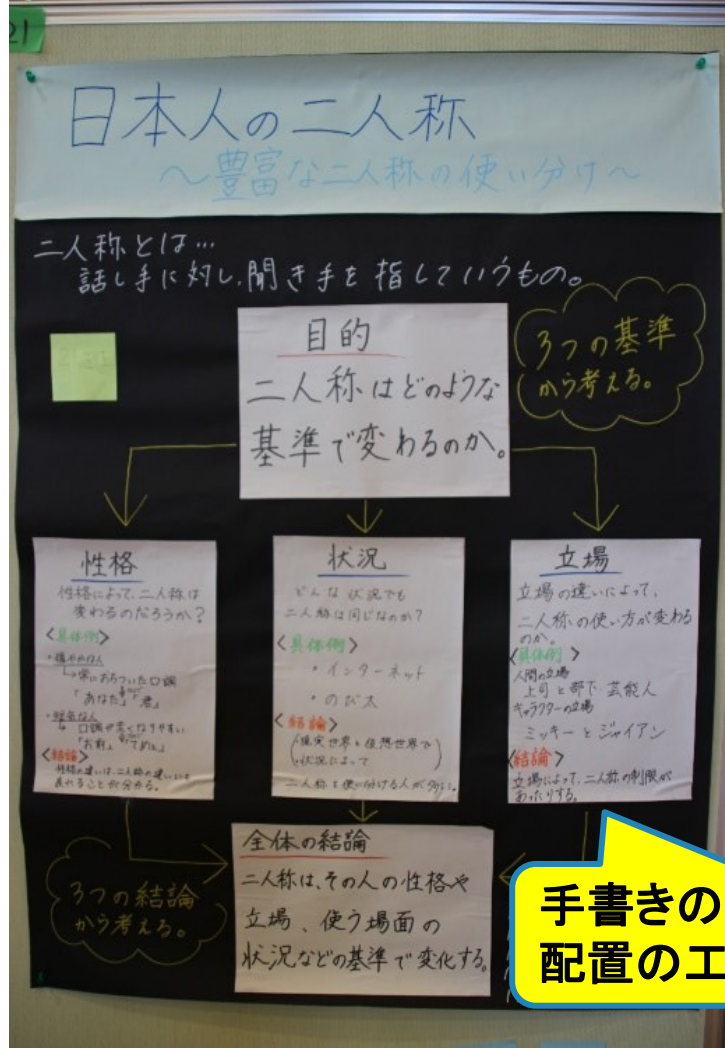 21
日本人の二人称
～豊富な二人称の使い分け～
二人称とは…
話し手に対し、聞き手を指していうもの。
目的
二人称はどのような
基準で変わるのか。
3つの基準
から考える。
性格
性格によって、二人称は
変わるのだろうか?
<具体例>
・穏やかな人
↳常におちついた口調
「あなた」「君」
・短気な人
↳口調が荒くなりやすい
「お前」「てめえ」
<結論>
性格の違いは、二人称の違いにも
表れることが分かる。
状況
どんな状況でも
二人称は同じなのか?
<具体例>
・インターネット
・のび太
<結論>
現実世界と仮想世界で
状況によって
二人称を使い分ける人が多い。
立場
立場の違いによって、
二人称の使い方が変わる
のか。
<具体例>
人間の立場
上司と部下 芸能人
キャラクターの立場
ミッキーとジャイアン
<結論>
立場によって、二人称の制限が
あったりする。
3つの結論
から考える。
全体の結論
二人称は、その人の性格や
立場、使う場面の
状況などの基準で変化する。
手書きの
配置の工